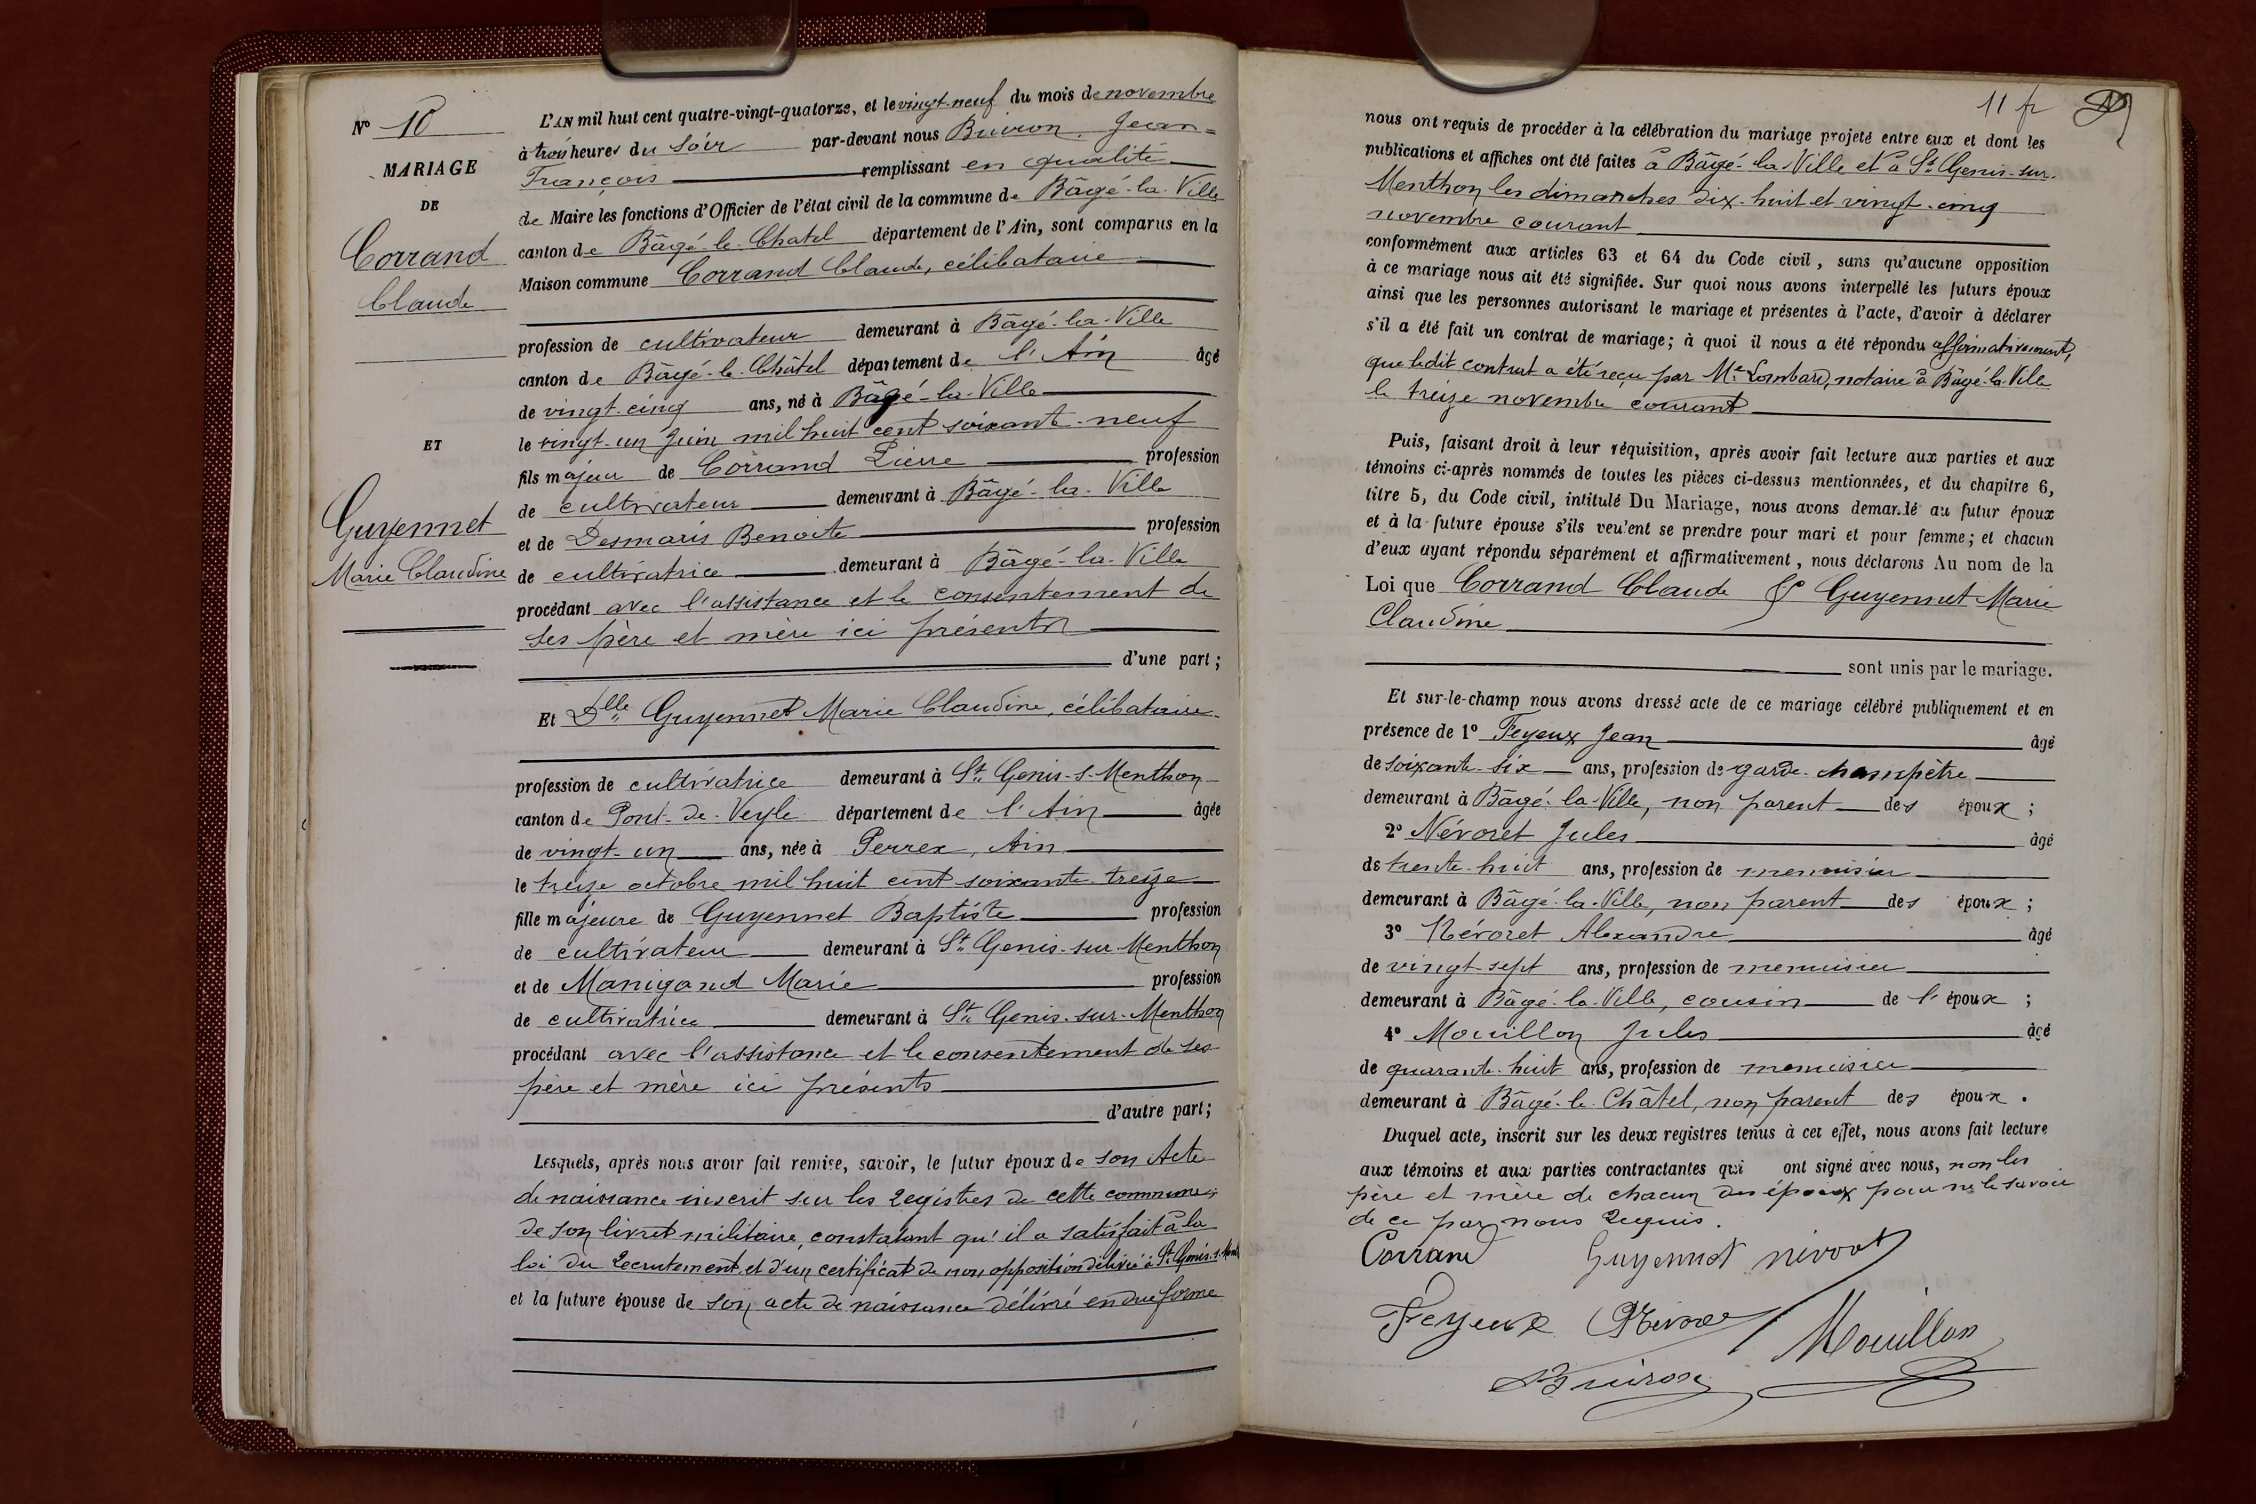 Nº 10
MARIAGE
DE
Corrand
Claude
ET
Guyennet
Marie Claudine
L'AN mil huit cent quatre-vingt-quatorze, et le vingt-neuf du mois de novembre
à trois heures du soir par-devant nous Buiron, Jean-
François remplissant en qualité
de Maire les fonctions d'Officier de l'état civil de la commune de Bâgé-la-Ville
canton de Bâgé-le-Chatel département de l'Ain, sont comparus en la
Maison commune Corrand Claude, célibataire
profession de cultivateur demeurant à Bâgé-la-Ville
canton de Bâgé-le-Châtel département de l'Ain âgé
de vingt-cinq ans, né à Bâgé-la-Ville
le vingt-un juin mil huit cent soixante-neuf
fils majeur de Corrand Pierre profession
de cultivateur demeurant à Bâgé-la-Ville
et de Desmaris Benoite profession
de cultivatrice demeurant à Bâgé-la-Ville
procédant avec l'assistance et le consentement de
ses père et mère ici présents
d'une part;
Et Dlle Guyennet Marie Claudine, célibataire
profession de cultivatrice demeurant à St Genis-s-Menthon
canton de Pont-de-Veyle département de l'Ain âgée
de vingt-un ans, née à Perrex, Ain
le treize octobre mil huit cent soixante-treize
fille majeure de Guyennet Baptiste profession
de cultivateur demeurant à St Genis-sur-Menthon
et de Manigand Marie profession
de cultivatrice demeurant à St Genis-sur-Menthon
procédant avec l'assistance et le consentement de ses
père et mère ici présents
d'autre part;
Lesquels, après nous avoir fait remise, savoir, le futur époux de son Acte
de naissance inscrit sur les registres de cette commune;
de son livret militaire, constatant qu'il a satisfait à la
loi du recrutement, et d'un certificat de non opposition délivré à St Genis-s-Menth
et la future épouse de son acte de naissance délivré en due forme
11 fr
nous ont requis de procéder à la célébration du mariage projeté entre eux et dont les
publications et affiches ont été faites à Bâgé-la-Ville et à St Genis-sur-
Menthon les dimanches dix-huit et vingt-cinq
novembre courant
conformément aux articles 63 et 64 du Code civil, sans qu'aucune opposition
à ce mariage nous ait été signifiée. Sur quoi nous avons interpellé les futurs époux
ainsi que les personnes autorisant le mariage et présentes à l'acte, d'avoir à déclarer
s'il a été fait un contrat de mariage; à quoi il nous a été répondu affirmativement,
que ledit contrat a été reçu par Me Lombard, notaire à Bâgé-la-Ville
le treize novembre courant
Puis, faisant droit à leur réquisition, après avoir fait lecture aux parties et aux
témoins ci-après nommés de toutes les pièces ci-dessus mentionnées, et du chapitre 6,
titre 5, du Code civil, intitulé Du Mariage, nous avons demandé au futur époux
et à la future épouse s'ils veulent se prendre pour mari et pour femme; et chacun
d'eux ayant répondu séparément et affirmativement, nous déclarons Au nom de la
Loi que Corrand Claude & Guyennet Marie
Claudine
sont unis par le mariage.
Et sur-le-champ nous avons dressé acte de ce mariage célébré publiquement et en
présence de 1º Feyeux Jean âgé
de soixante-six ans, profession de garde-champêtre
demeurant à Bâgé-la-Ville, non parent des époux;
2º Névoret Jules âgé
de trente-huit ans, profession de menuisier
demeurant à Bâgé-la-Ville, non parent des époux;
3º Névoret Alexandre âgé
de vingt-sept ans, profession de menuisier
demeurant à Bâgé-la-Ville, cousin de l'époux;
4º Mouillon Jules âgé
de quarante-huit ans, profession de menuisier
demeurant à Bâgé-le-Châtel, non parent des époux.
Duquel acte, inscrit sur les deux registres tenus à cet effet, nous avons fait lecture
aux témoins et aux parties contractantes qui ont signé avec nous, non les
père et mère de chacun des époux pour ne le savoir
de ce par nous requis.
Corrand Guyennet Névoret
Feyeux Névoret Mouillon
Buiron